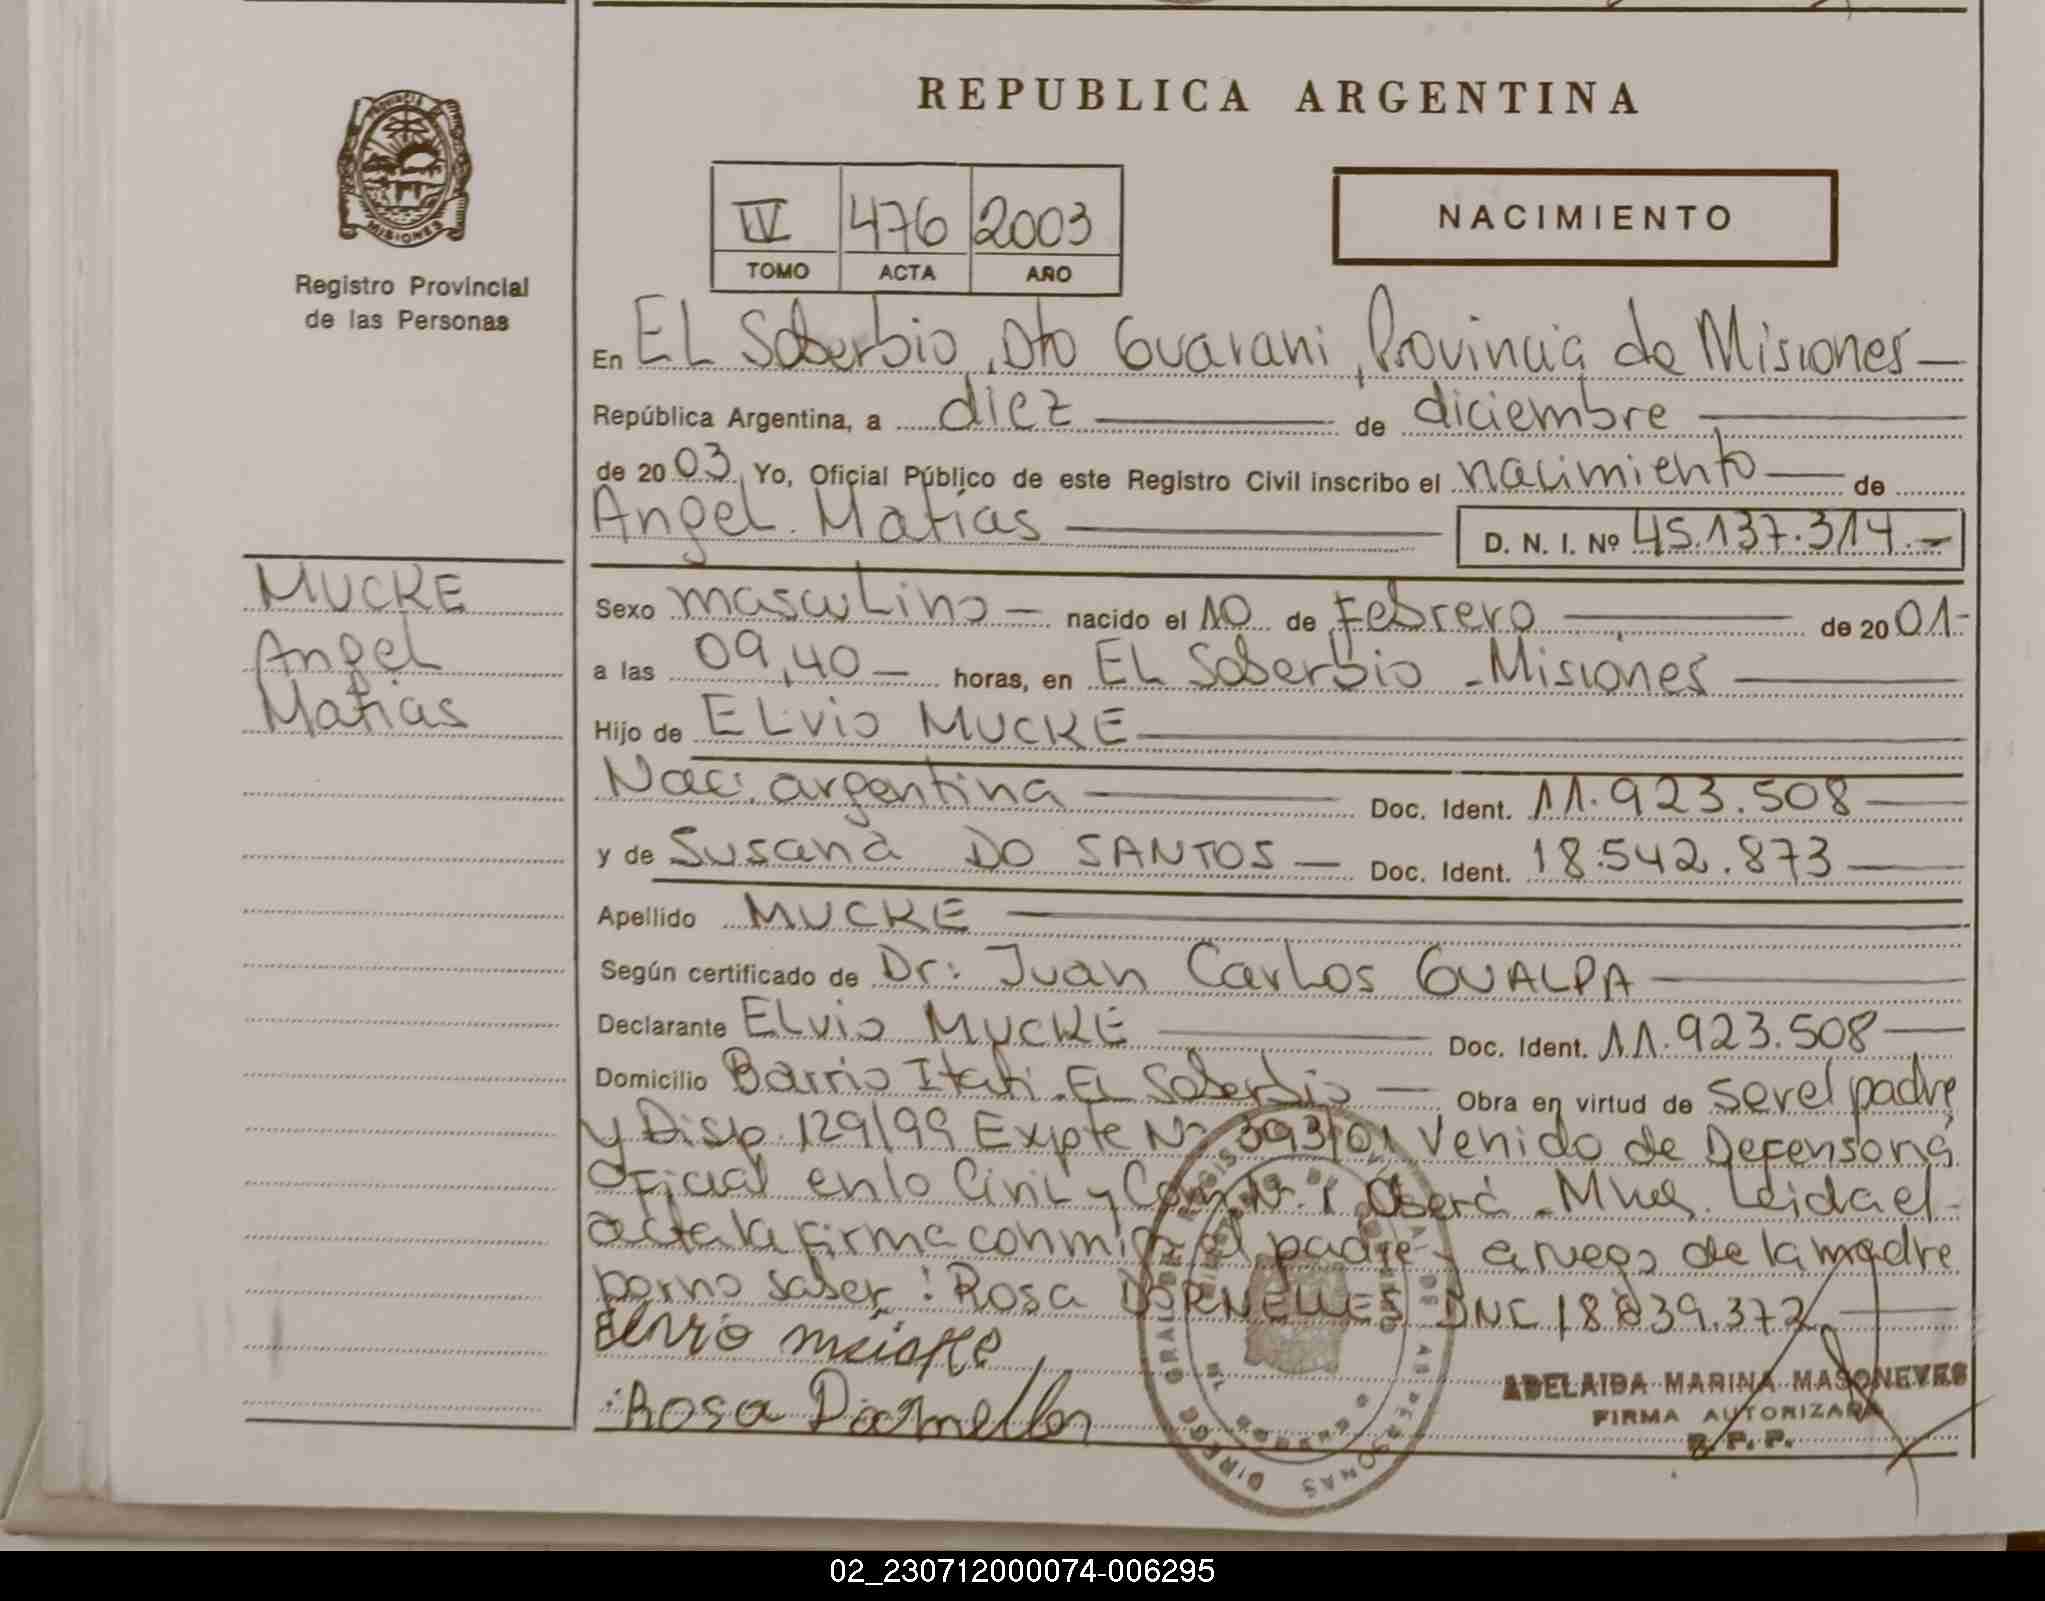 REPUBLICA ARGENTINA
PROVINCIA DE MISIONES
Registro Provincial
de las Personas
IV 476 2003
TOMO ACTA AÑO
NACIMIENTO
En EL Soberbio, Dto Guarani, Provincia de Misiones
República Argentina, a diez de diciembre
de 2003 Yo, Oficial Público de este Registro Civil inscribo el nacimiento de
Angel Matias D. N. I. Nº 45.137.314.-
MUCKE
Angel
Matias
Sexo masculino nacido el 10 de Febrero de 2001-
a las 09,40 horas, en EL Soberbio - Misiones
Hijo de ELvio MUCKE
Nac. argentina Doc. Ident. 11.923.508
y de Susana DO SANTOS Doc. Ident. 18.542.873
Apellido MUCKE
Según certificado de Dr: Juan Carlos GUALPA
Declarante ELvio MUCKE Doc. Ident. 11.923.508
Domicilio Barrio Itati. EL Soberbio Obra en virtud de ser el padre
y Disp. 129/99 Expte Nº 393/01 Venido de Defensoria
Oficial en lo Civil y Com Nº 1 Oberá - Mnes. Leida el
acta la firma conmigo el padre y a ruego de la madre
por no saber: Rosa DORNELLES DNI 18.839.372
Elvio mücke
Rosa Dornelles
ADELAIDA MARINA MASONEVES
FIRMA AUTORIZADA
R. P. P.
02_230712000074-006295